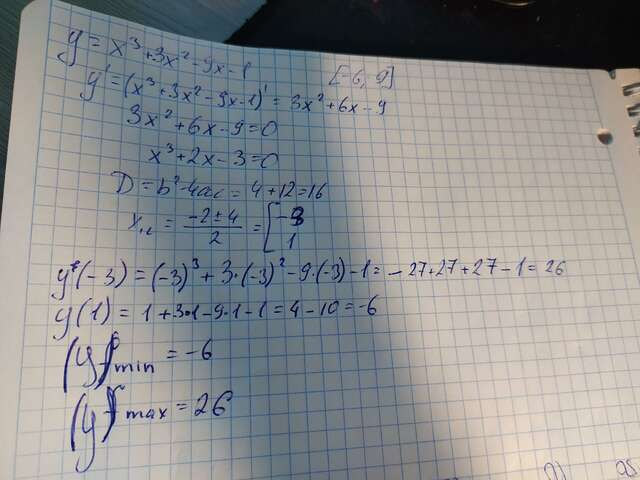 y = x³+3x²-9x-1 [-6, 9]
y' = (x³+3x²-9x-1)' = 3x²+6x-9
3x²+6x-9=0
x³+2x-3=0
D = b²-4ac = 4+12=16
x₁,₂ = (-2±4)/2 = [-3 1
y(-3) = (-3)³+3·(-3)²-9·(-3)-1 = -27+27+27-1=26
y(1) = 1+3·1-9·1-1=4-10=-6
(y) min = -6
(y) max = 26